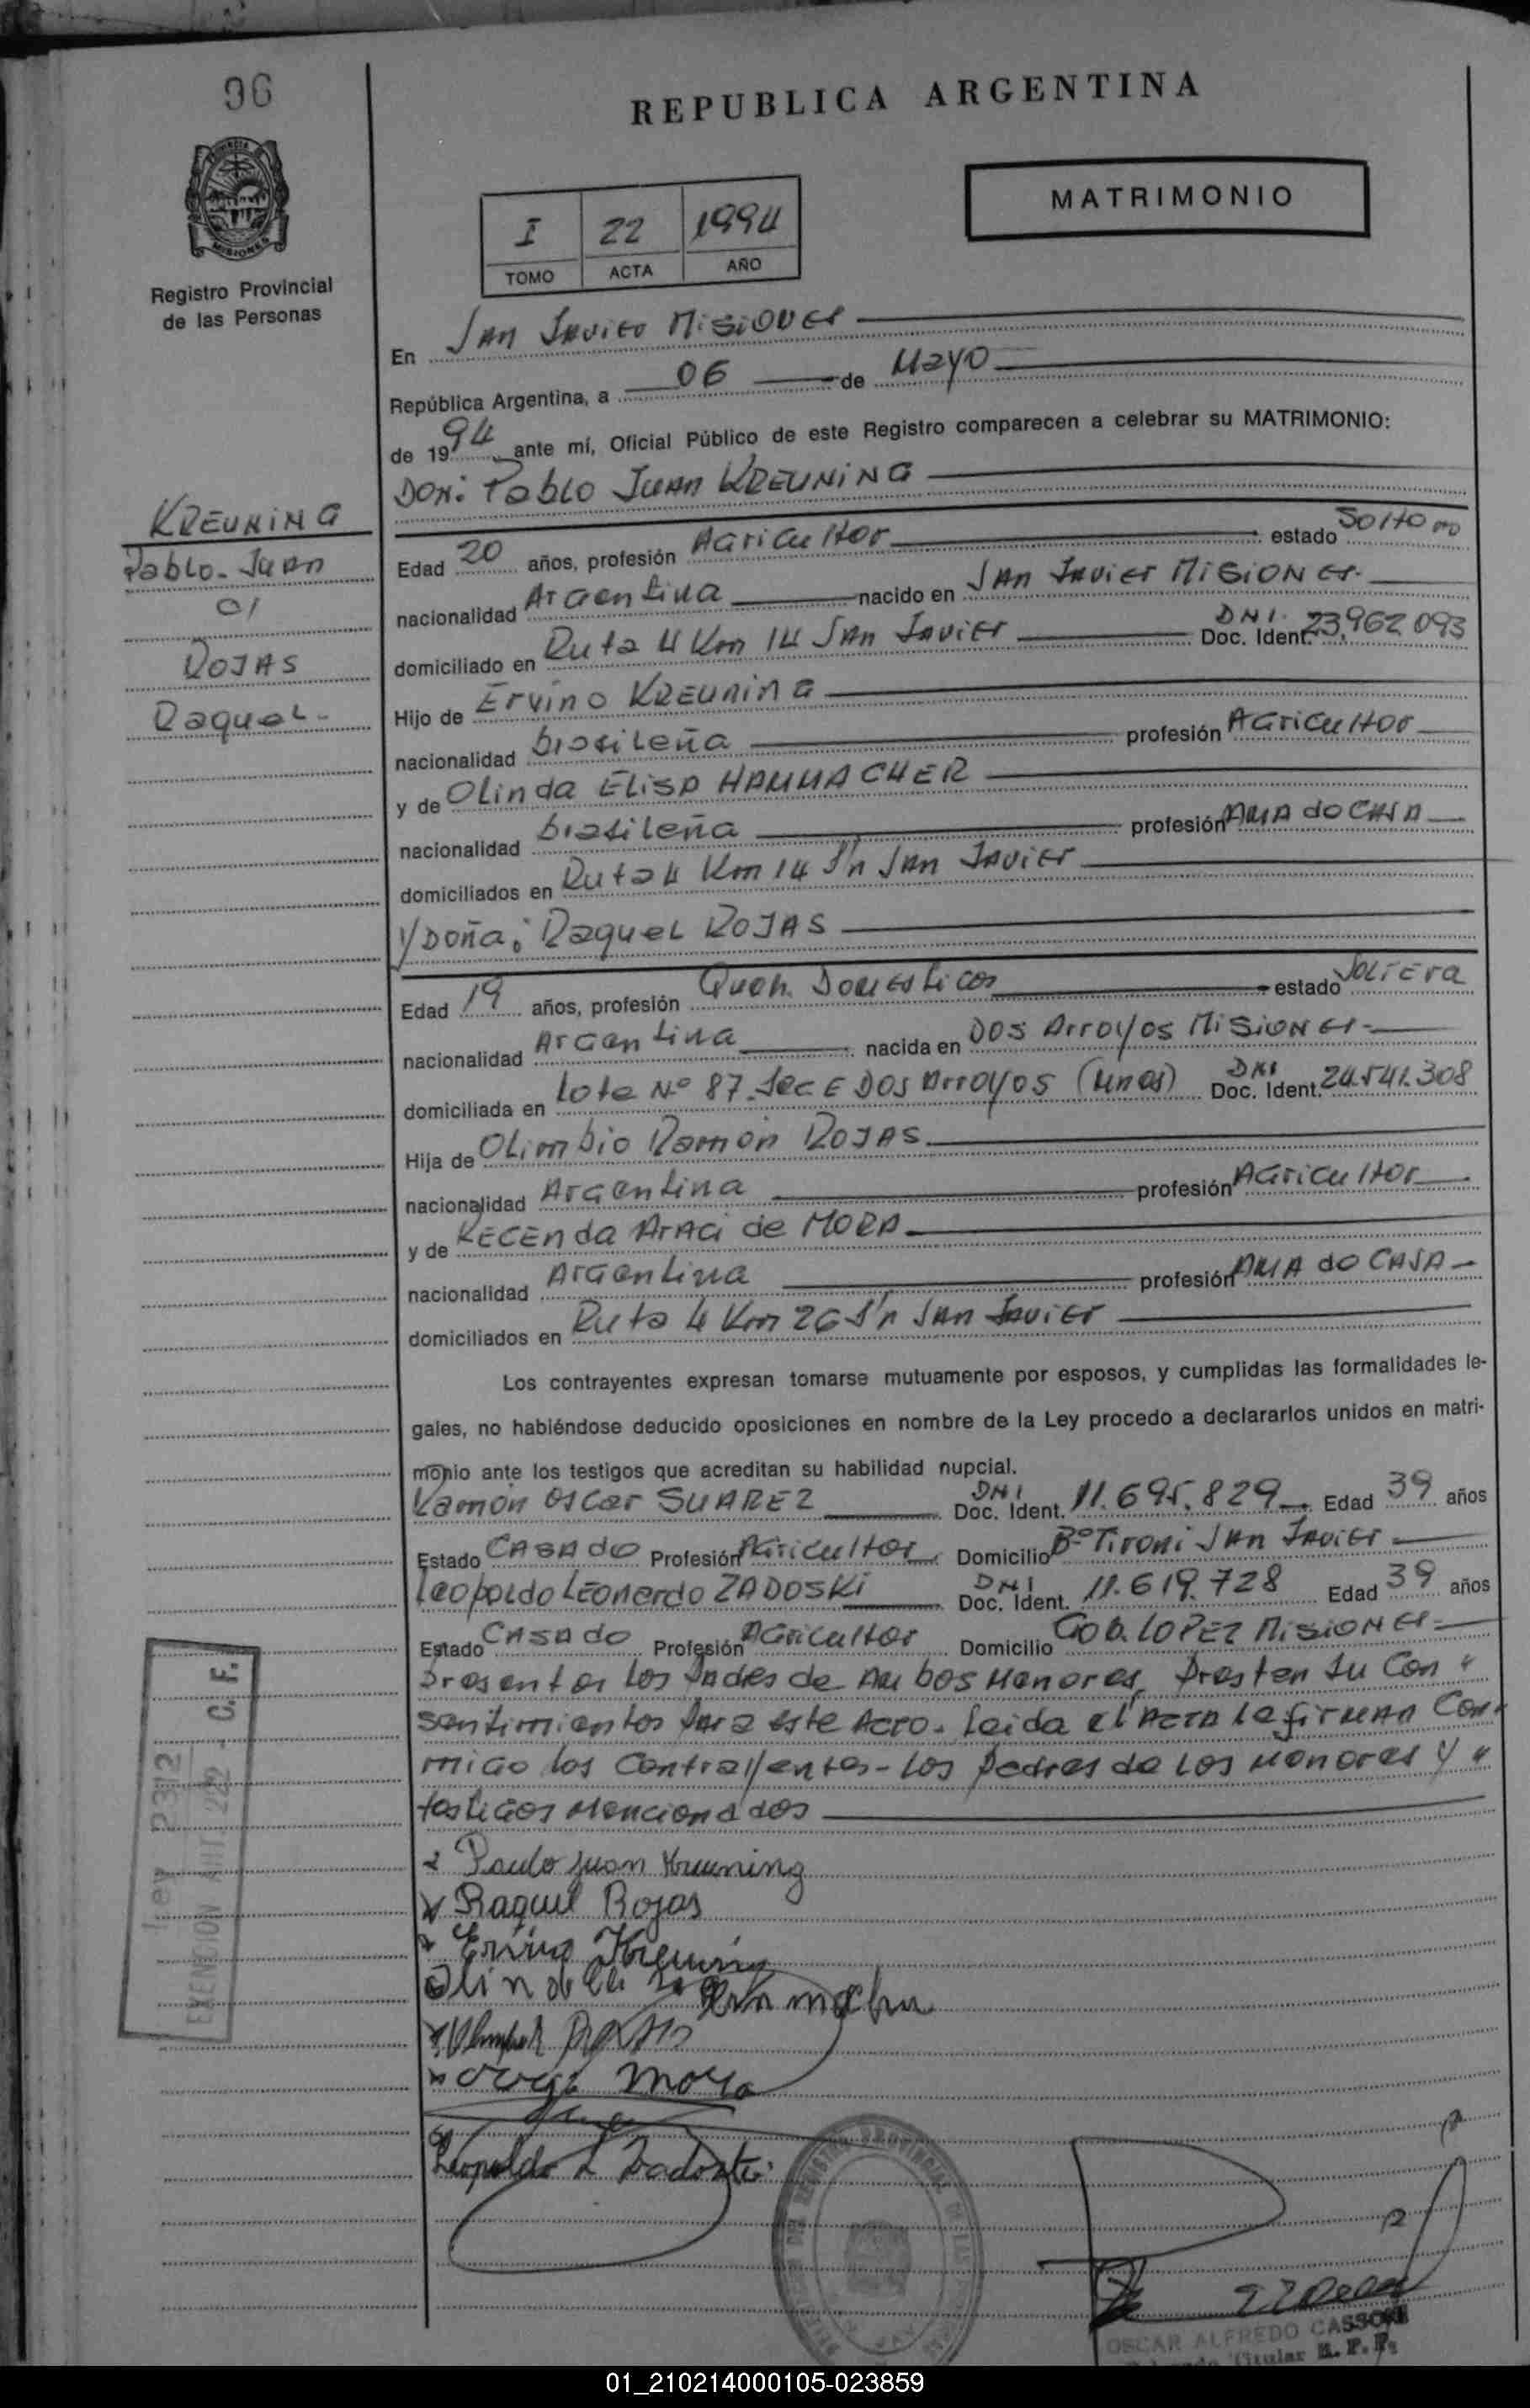 96
REPUBLICA ARGENTINA
MATRIMONIO
I 22 1994
TOMO ACTA AÑO
PROVINCIA DE
MISIONES
Registro Provincial
de las Personas
En San Javier Misiones
República Argentina, a 06 de Mayo
de 1994 ante mí, Oficial Público de este Registro comparecen a celebrar su MATRIMONIO:
Don: Pablo Juan KREUNING
KREUNING
Pablo-Juan
c/
ROJAS
Raquel-
Edad 20 años, profesión Agricultor estado Soltero
nacionalidad Argentina nacido en San Javier Misiones.
domiciliado en Ruta 4 Km 14 San Javier DNI. Doc. Ident. 23.962.093
Hijo de Ervino KREUNING
nacionalidad brasileña profesión Agricultor
y de Olinda Elisa HAMMACHER
nacionalidad brasileña profesión Ama de Casa
domiciliados en Ruta 4 Km 14 S/n San Javier
y Doña: Raquel ROJAS
Edad 19 años, profesión Queh. Domesticos estado Soltera
nacionalidad Argentina nacida en Dos Arroyos Misiones-
domiciliada en Lote Nº 87. Sec E Dos Arroyos DNI Doc. Ident. 24.541.308
Hija de Olimbio Ramón ROJAS
nacionalidad Argentina profesión Agricultor
y de Araci de MORA
nacionalidad Argentina profesión Ama de Casa
domiciliados en Ruta 4 Km 26 S/n San Javier
Los contrayentes expresan tomarse mutuamente por esposos, y cumplidas las formalidades le-
gales, no habiéndose deducido oposiciones en nombre de la Ley procedo a declararlos unidos en matri-
monio ante los testigos que acreditan su habilidad nupcial.
Ramón Oscar SUAREZ DNI Doc. Ident. 11.695.829 Edad 39 años
Estado Casado Profesión Agricultor Domicilio Bº Tironi San Javier
Leopoldo Leonardo ZADOSKI DNI Doc. Ident. 11.619.728 Edad 39 años
Estado Casado Profesión Agricultor Domicilio Gob. Lopez Misiones
Presentes los Padres de Ambos Menores, Prestan su Con"
sentimientos para este Acto. Leida el Acta la firman Con-
migo los Contrayentes- los padres de los Menores y "
testigos Mencionados
Ley 2312
EXENCION ART 222 - C. F.
Paulo Juan Kreuning
Raquel Rojas
Ervino Kreuning
Mora
Leopoldo L Zadoski
OSCAR ALFREDO CASSONI
Titular R. P. P.
01_210214000105-023859